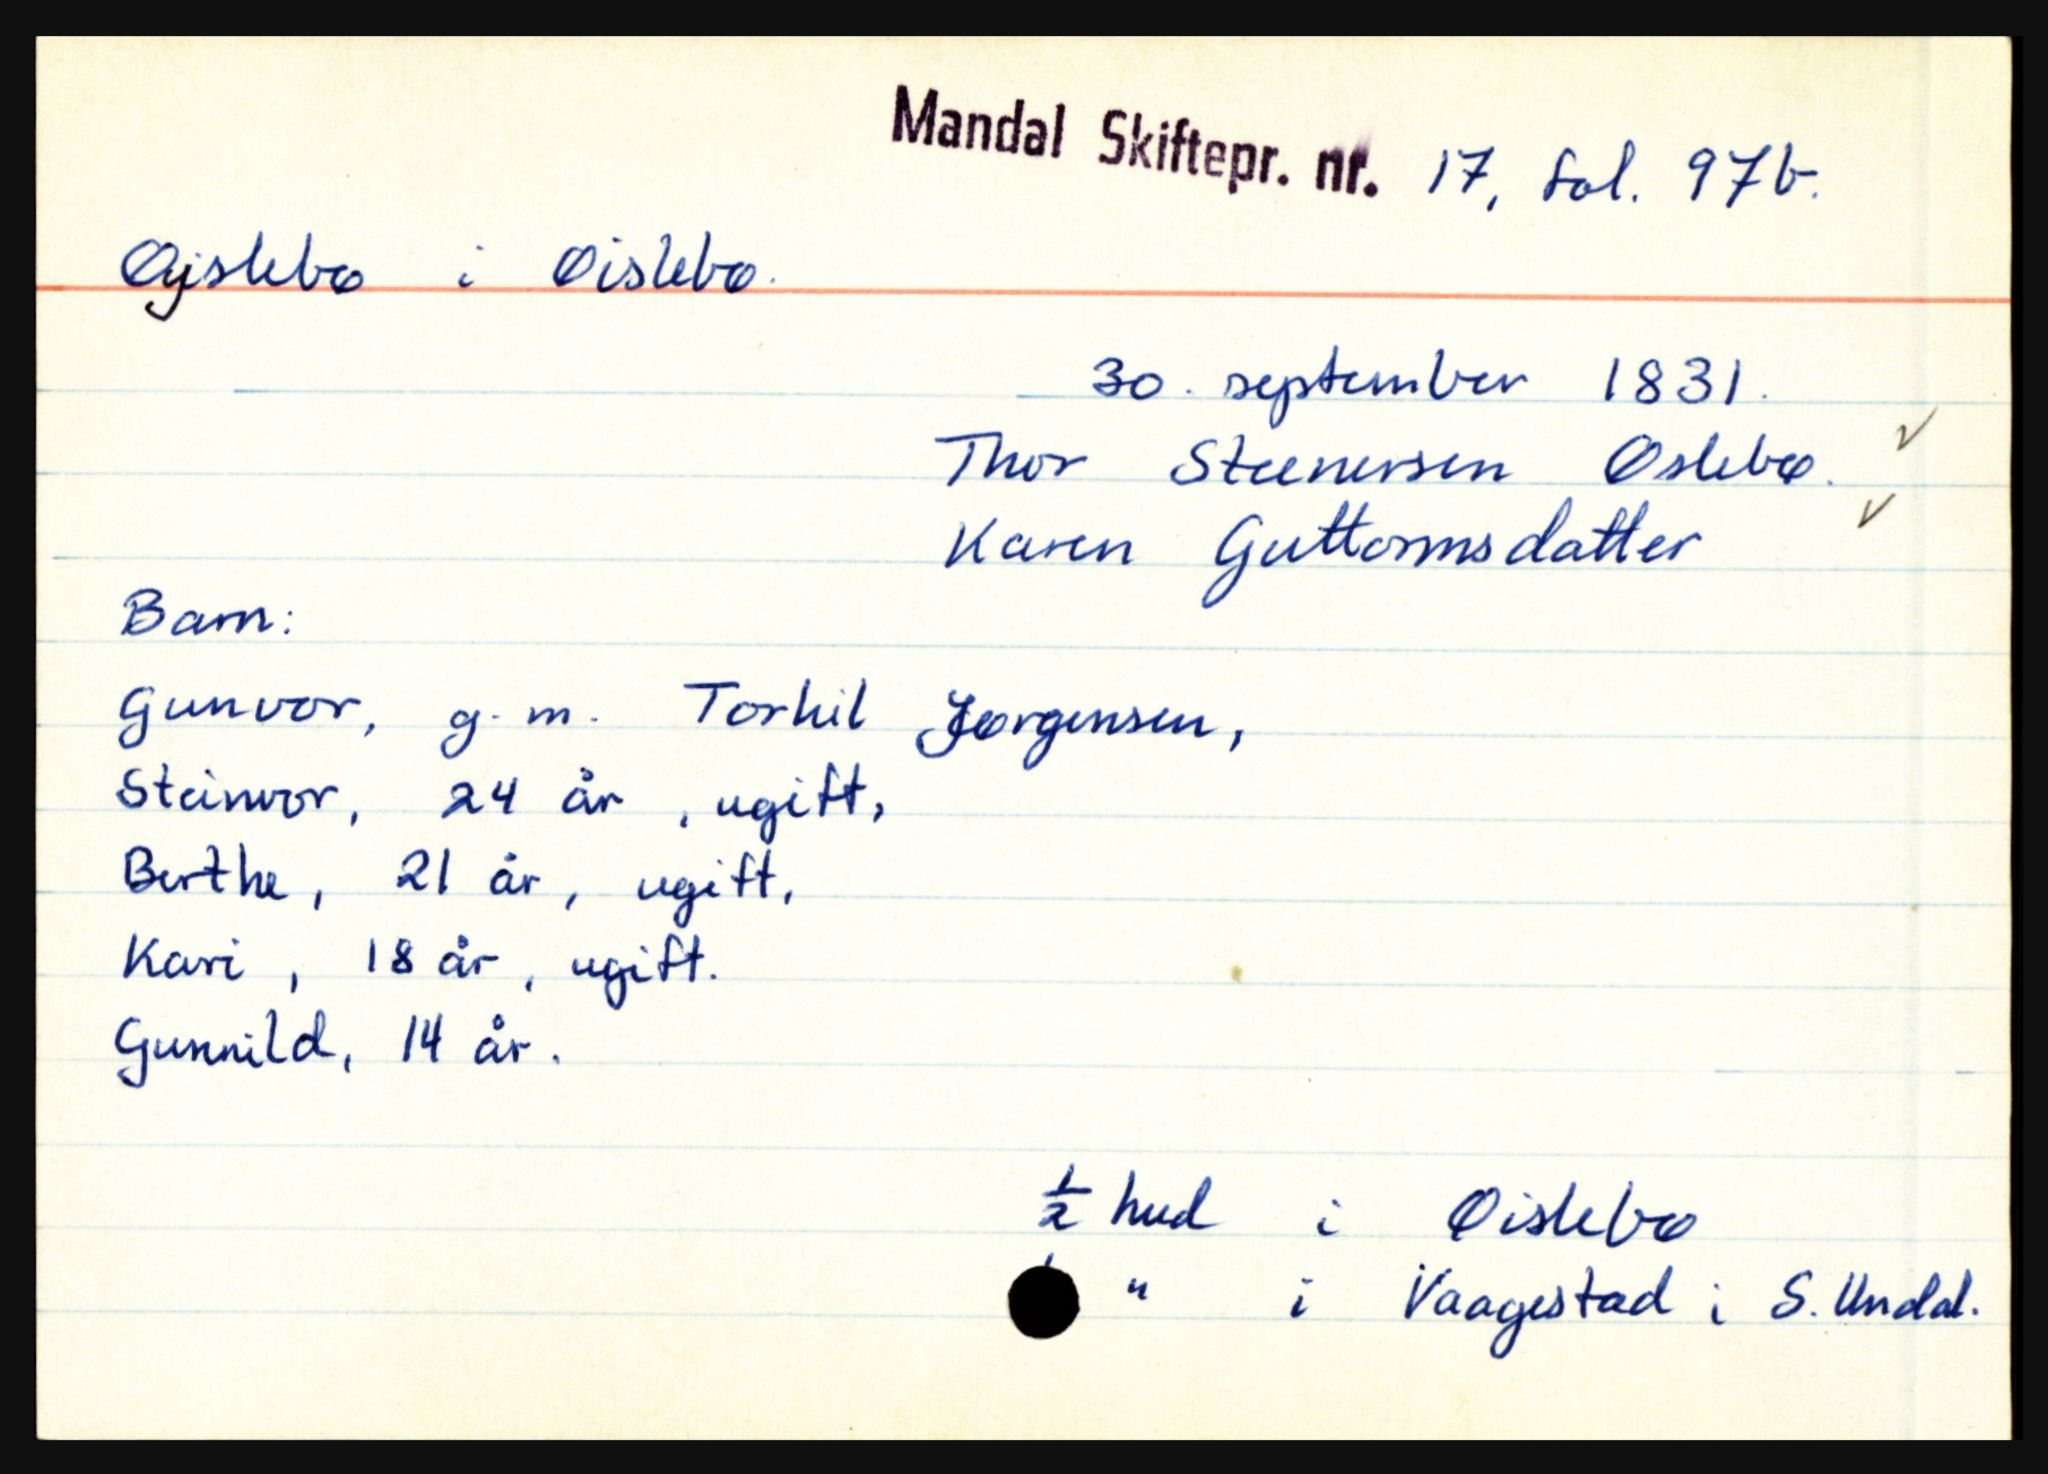 Mandal Skiftepr. nr. 17, fol. 97b.
Øyslebø i Øislebø.
30. september 1831.
Thor Steenersen Øslebø.
Karen Guttormsdatter
Barn:
Gunvor, g. m. Torkil Jørgensen,
Steinvor, 24 år, ugift,
Berthe, 21 år, ugift,
Kari, 18 år, ugift.
Gunnild, 14 år.
1/2 hud i Øislebø
" i Vaagestad i S. Undal.